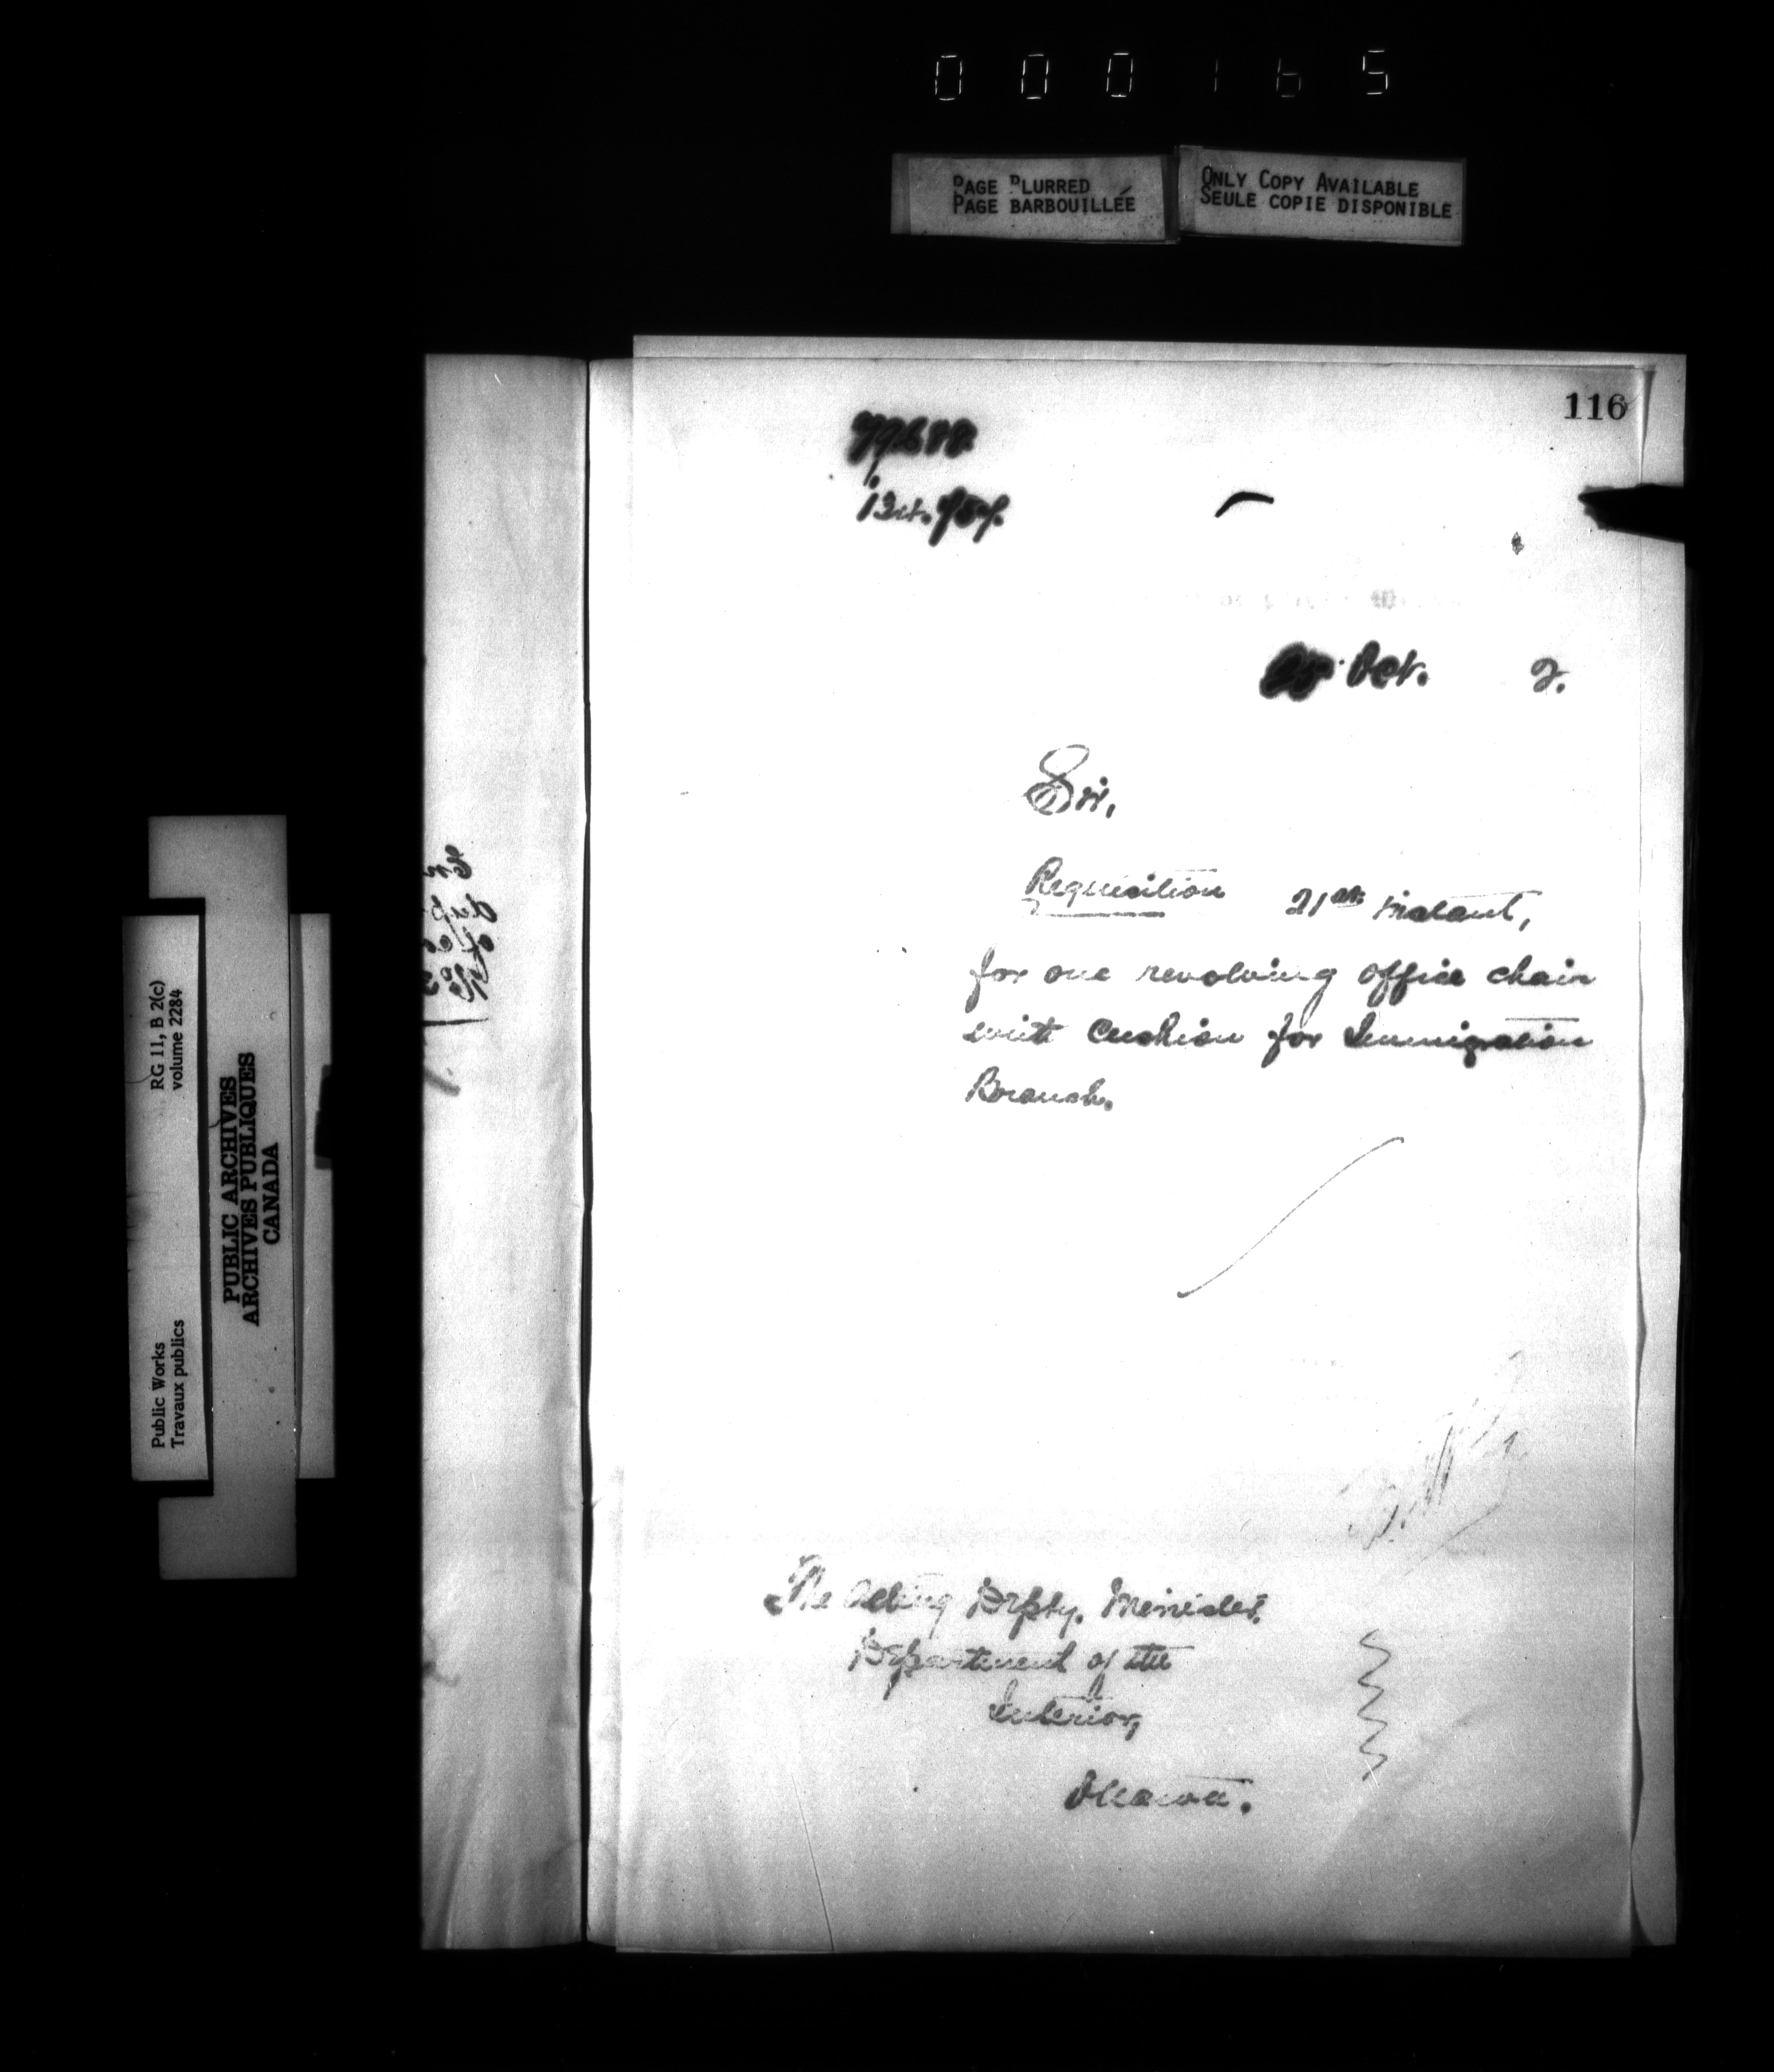 000165
PAGE BLURRED
PAGE BARBOUILLÉE
ONLY COPY AVAILABLE
SEULE COPIE DISPONIBLE
116
Oct. 2.
Sir,
Requisition 21st instant,
for one revolving office chair
with cushion for Immigration
Branch.
The Acting Depty. Minister,
Department of the
Interior,
Ottawa.
RG 11, B 2(c)
volume 2284
Public Works
Travaux publics
PUBLIC ARCHIVES
ARCHIVES PUBLIQUES
CANADA